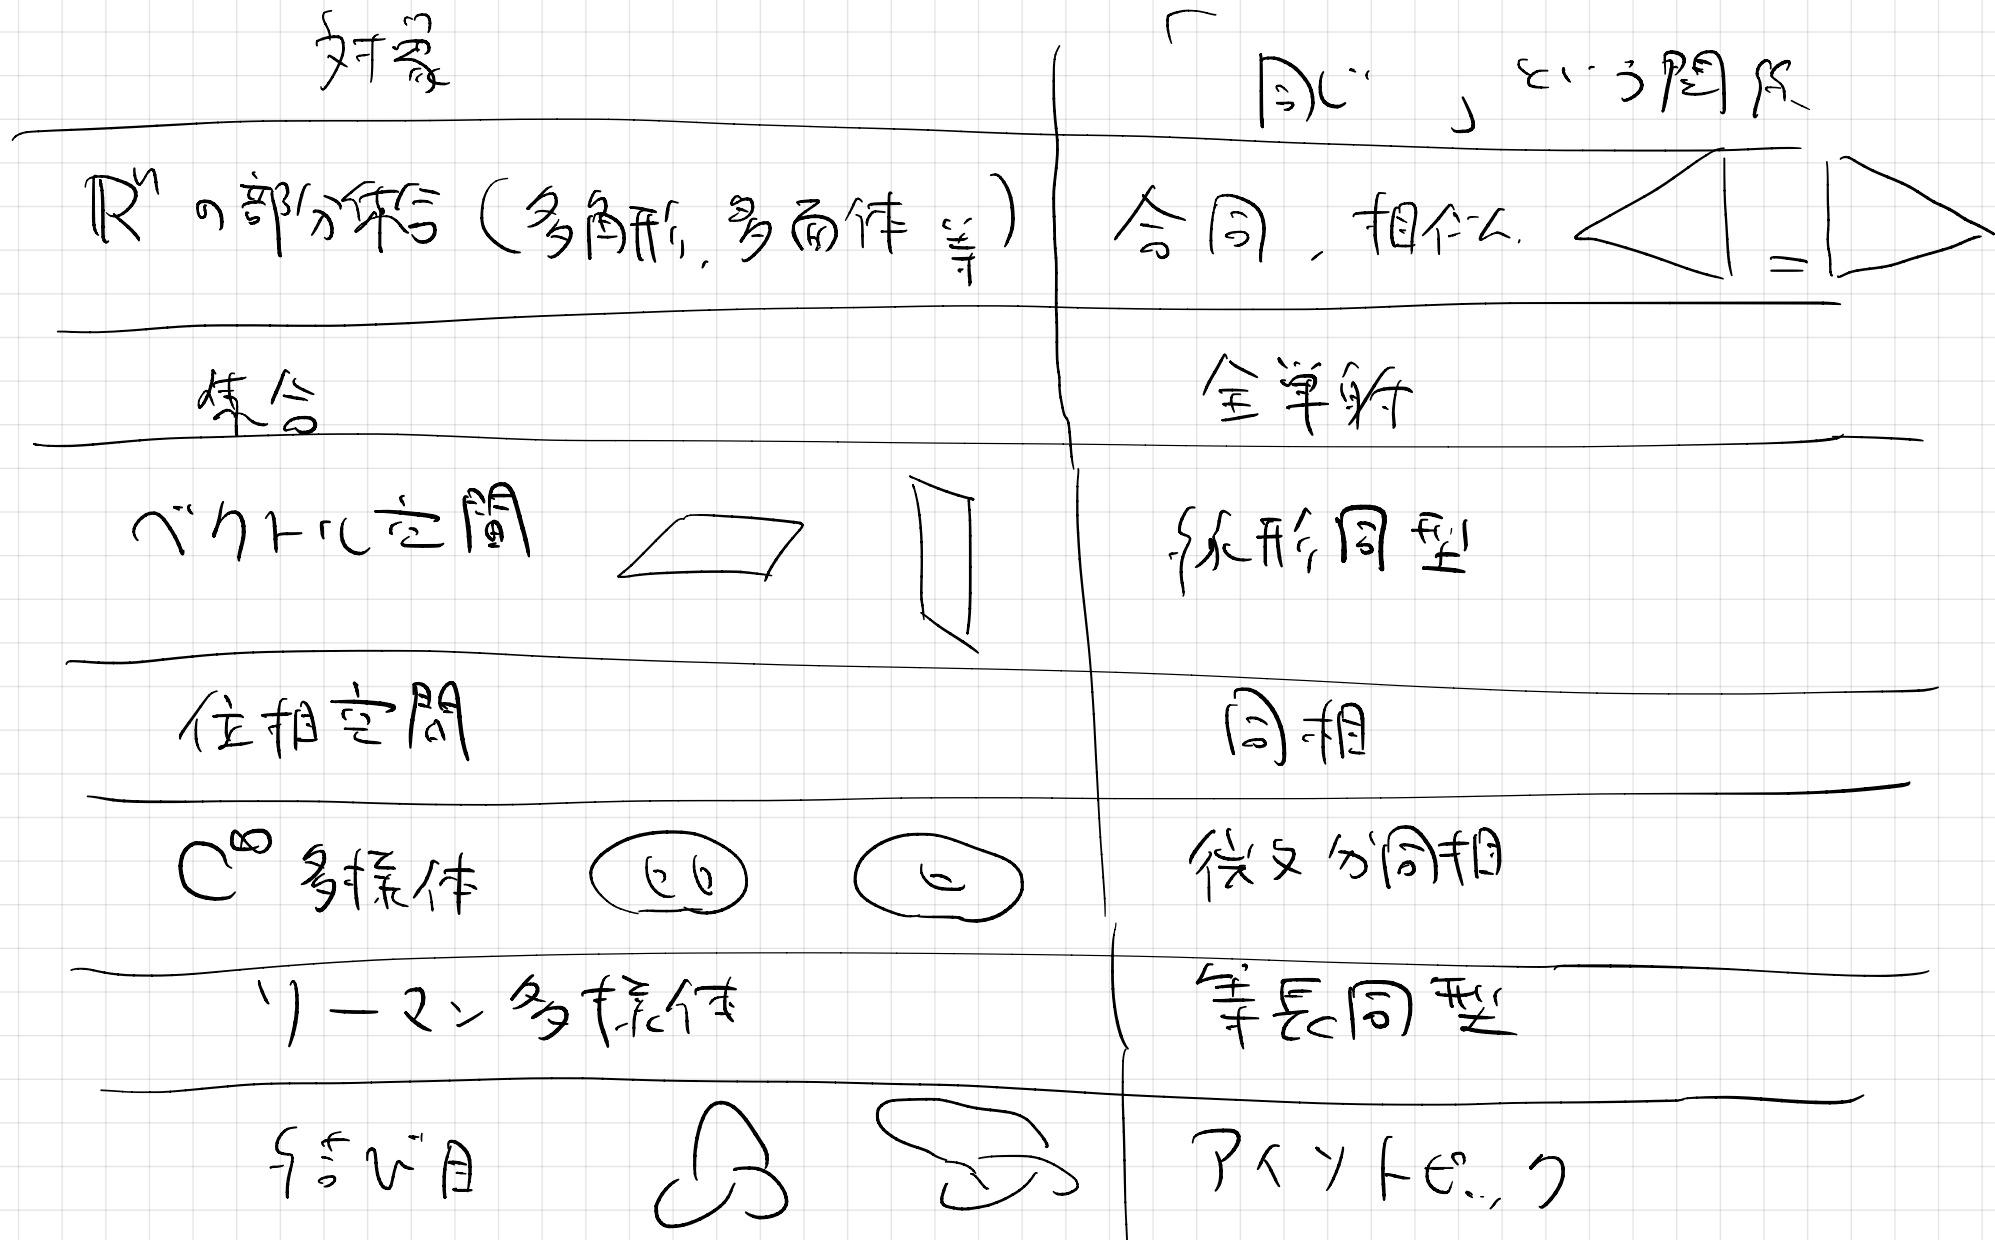 対象 「同じ」という関係
ℝⁿの部分集合（多角形, 多面体 等） 合同, 相似 =
集合 全単射
ベクトル空間 線形同型
位相空間 同相
C^∞ 多様体 微分同相
リーマン多様体 等長同型
結び目 アイソトピック